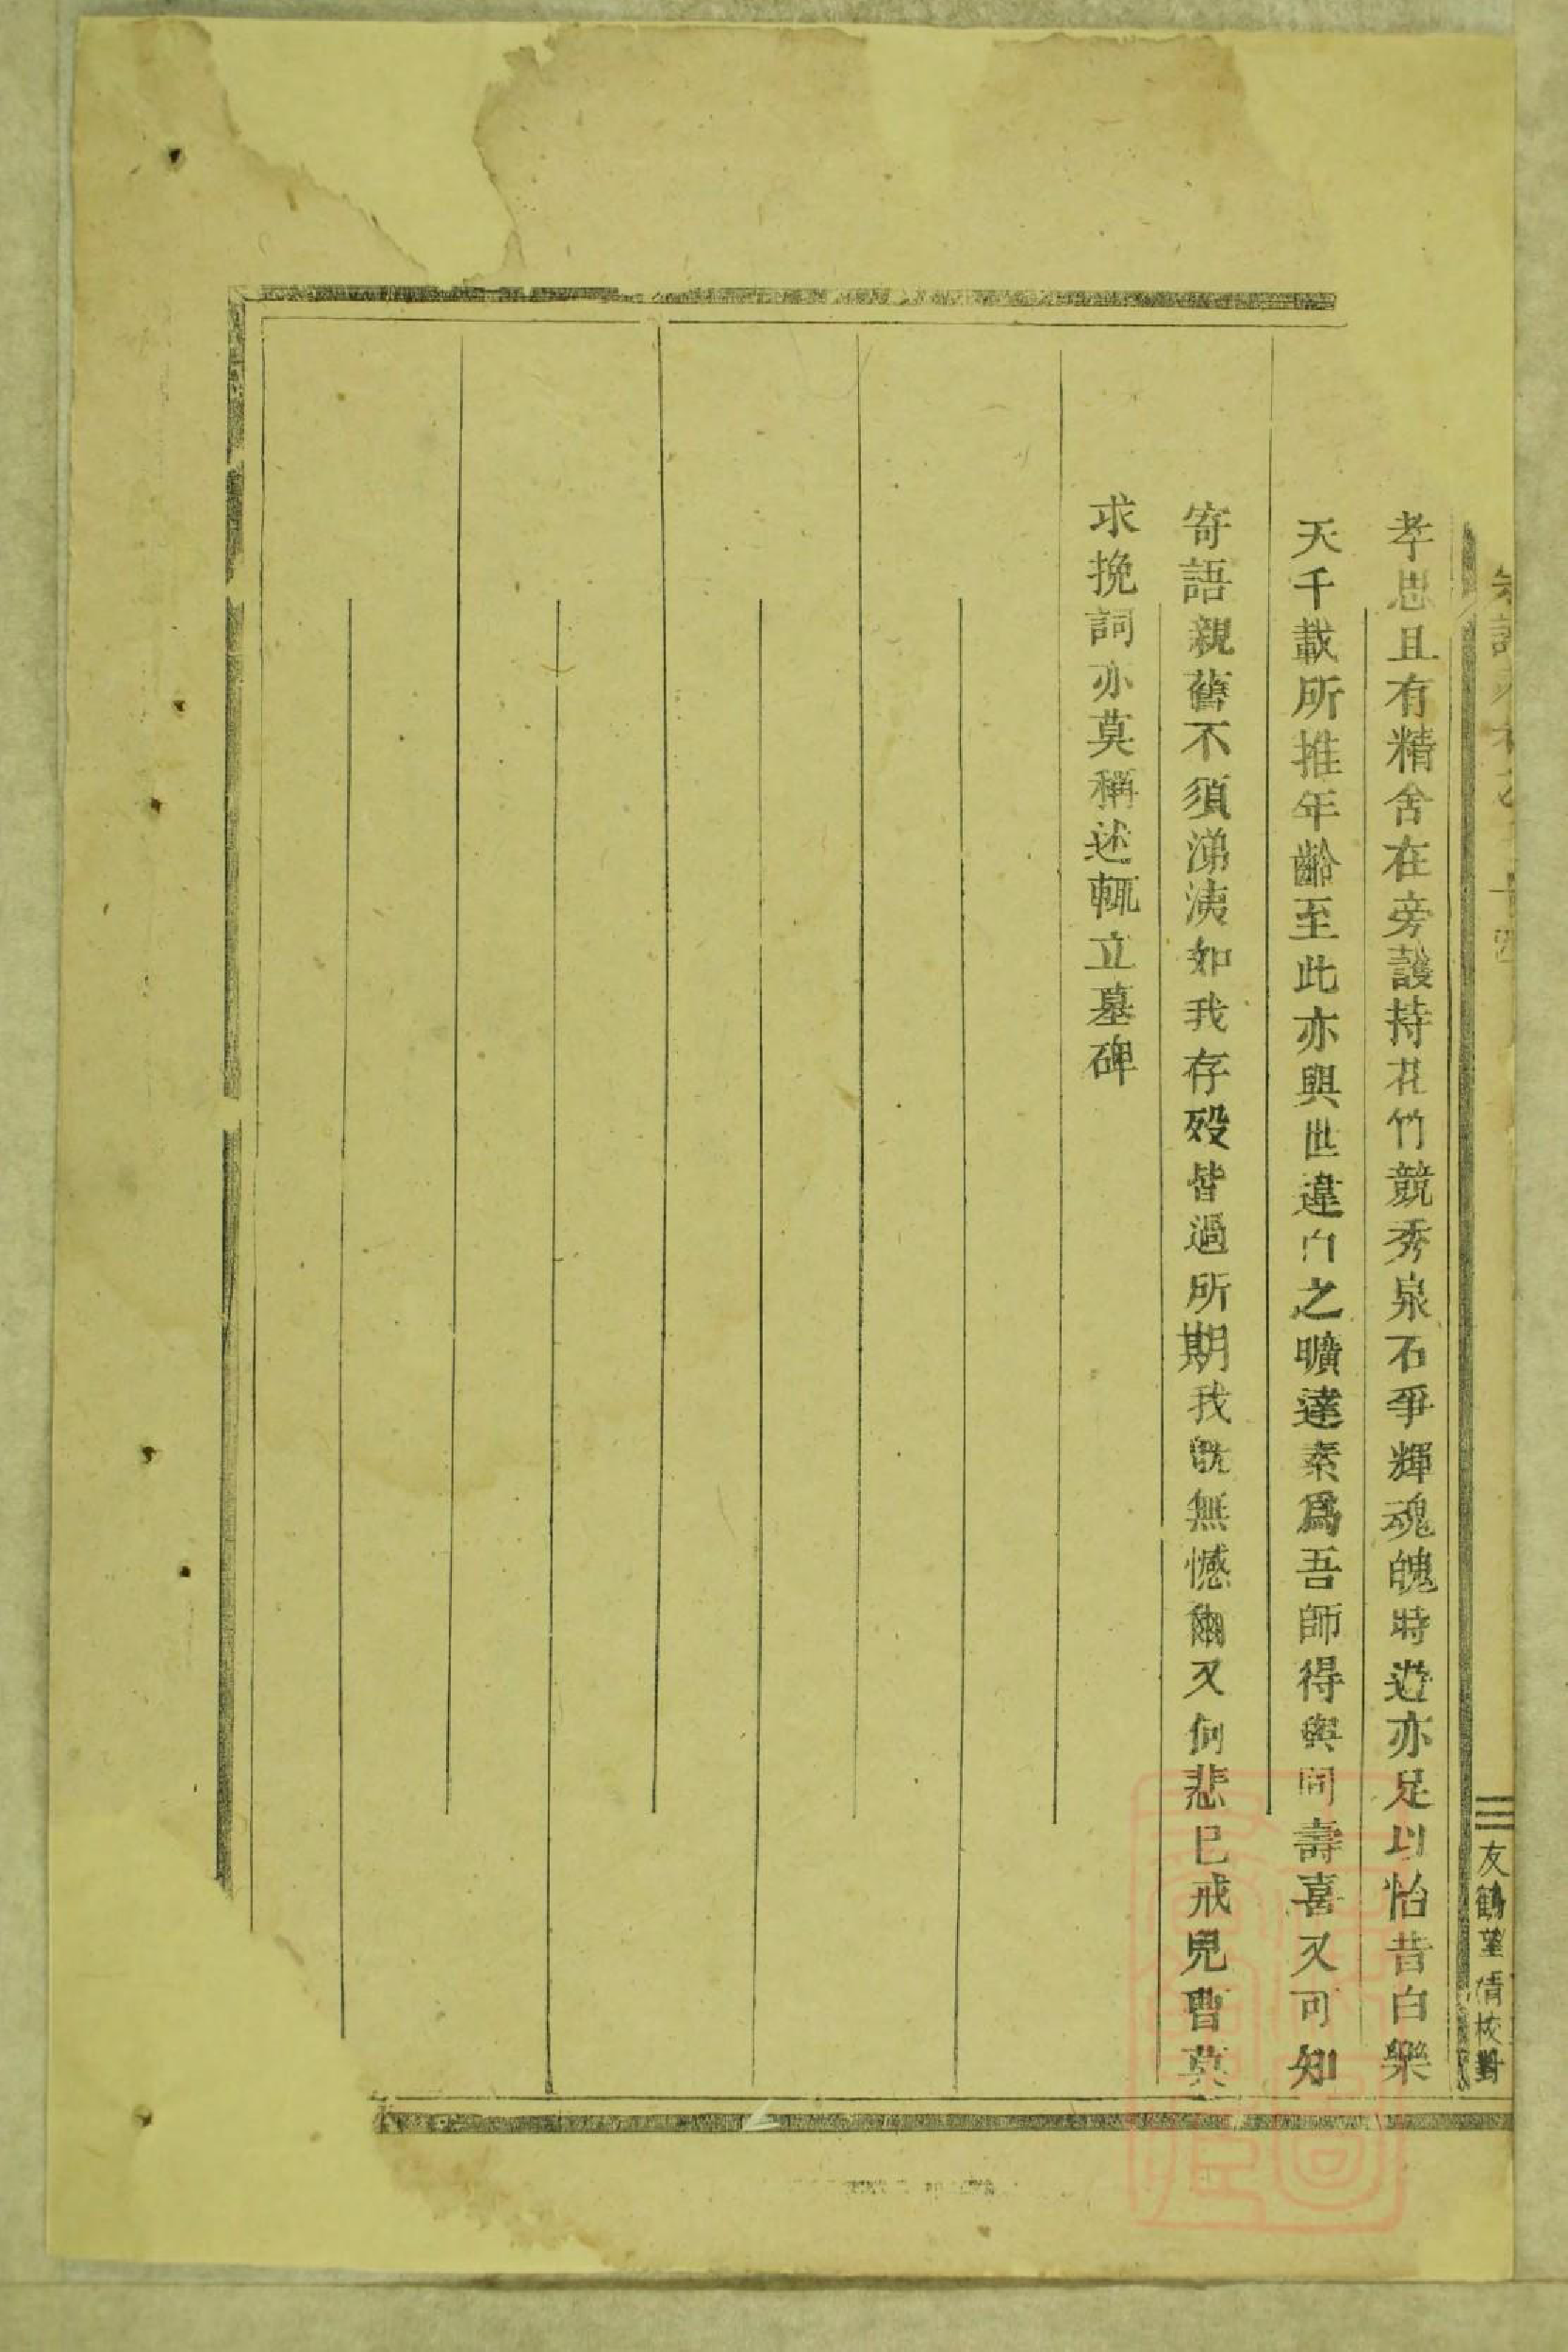 友鶴堂倩校對
孝思且有精舍在旁護持花竹競秀泉石爭輝魂魄時遊亦足以怡昔白樂
天千載所推年齡至此亦與世違白之曠達素爲吾師得與同壽喜又可知
寄語親舊不須涕洟如我存歿皆過所期我旣無憾爾又何悲已戒兒曹莫
求挽詞亦莫稱述輒立墓碑